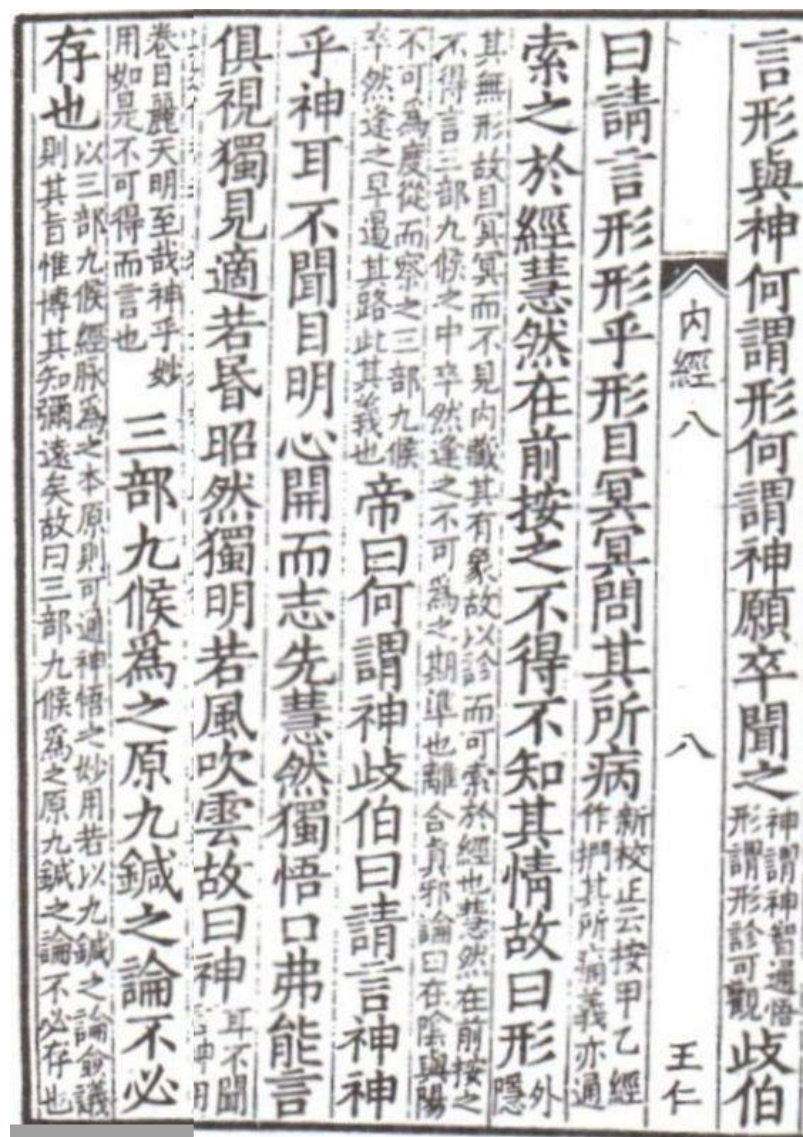 言形與神何謂形何謂神願卒聞之
神謂神智通悟
形謂形診可觀
歧伯
內經八
八
王仁
曰請言形形乎形目冥冥問其所病
新校正云按甲乙經
作捫其所病義亦通
索之於經慧然在前按之不得不知其情故曰形
外
隱
其無形故目冥冥而不見內藏其有象故以診而可索於經也慧然在前按之
不得言三部九候之中卒然逢之不可為之期準也離合真邪論曰在陰與陽
不可為度從而察之三部九候
卒然逢之早遏其路此其義也
帝曰何謂神歧伯曰請言神神
乎神耳不聞目明心開而志先慧然獨悟口弗能言
俱視獨見適若昬昭然獨明若風吹雲故曰神
耳不聞
神用
卷目麗天明至哉神乎妙
用如是不可得而言也
三部九候爲之原九鍼之論不必
存也
以三部九候經脉爲之本原則可通神悟之妙用若以九鍼之論僉議
則其旨惟博其知彌遠矣故曰三部九候爲之原九鍼之論不必存也